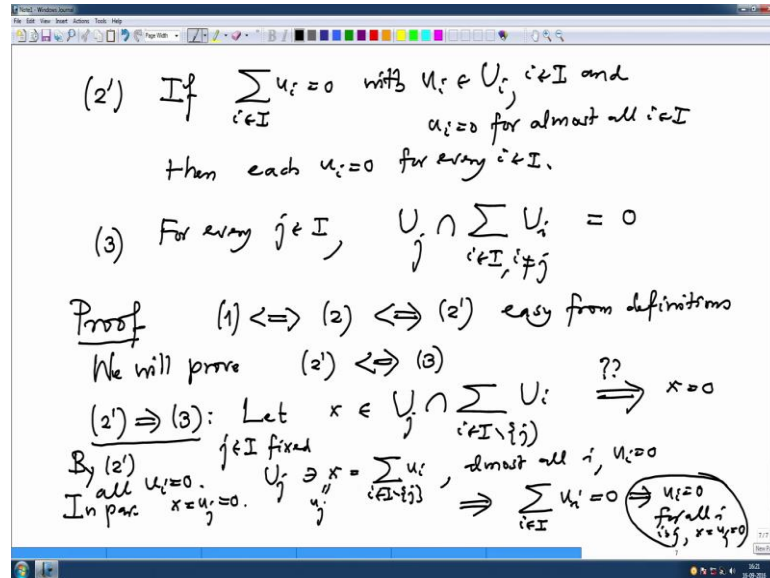 Note1 - Windows Journal
File Edit View Insert Actions Tools Help
Page Width
(2') If ∑_{i∈I} u_i = 0 with u_i ∈ U_i, i∈I and
u_i = 0 for almost all i∈I
then each u_i = 0 for every i∈I.
(3) For every j∈I, U_j ∩ ∑_{i∈I, i≠j} U_i = 0
Proof (1) <=> (2) <=> (2') easy from definitions
We will prove (2') <=> (3)
(2') => (3): Let x ∈ U_j ∩ ∑_{i∈I\{j}} U_i ??=> x = 0
j∈I fixed
By (2')
all u_i' = 0.
In par. x = u_j = 0.
U_j ∋ x = ∑_{i∈I\{j}} u_i, almost all i, u_i = 0
u_j''
=> ∑_{i∈I} u_i' = 0 => u_i = 0
for all i
i=j, x = u_j = 0
7/7
7
16:21
16-09-2018